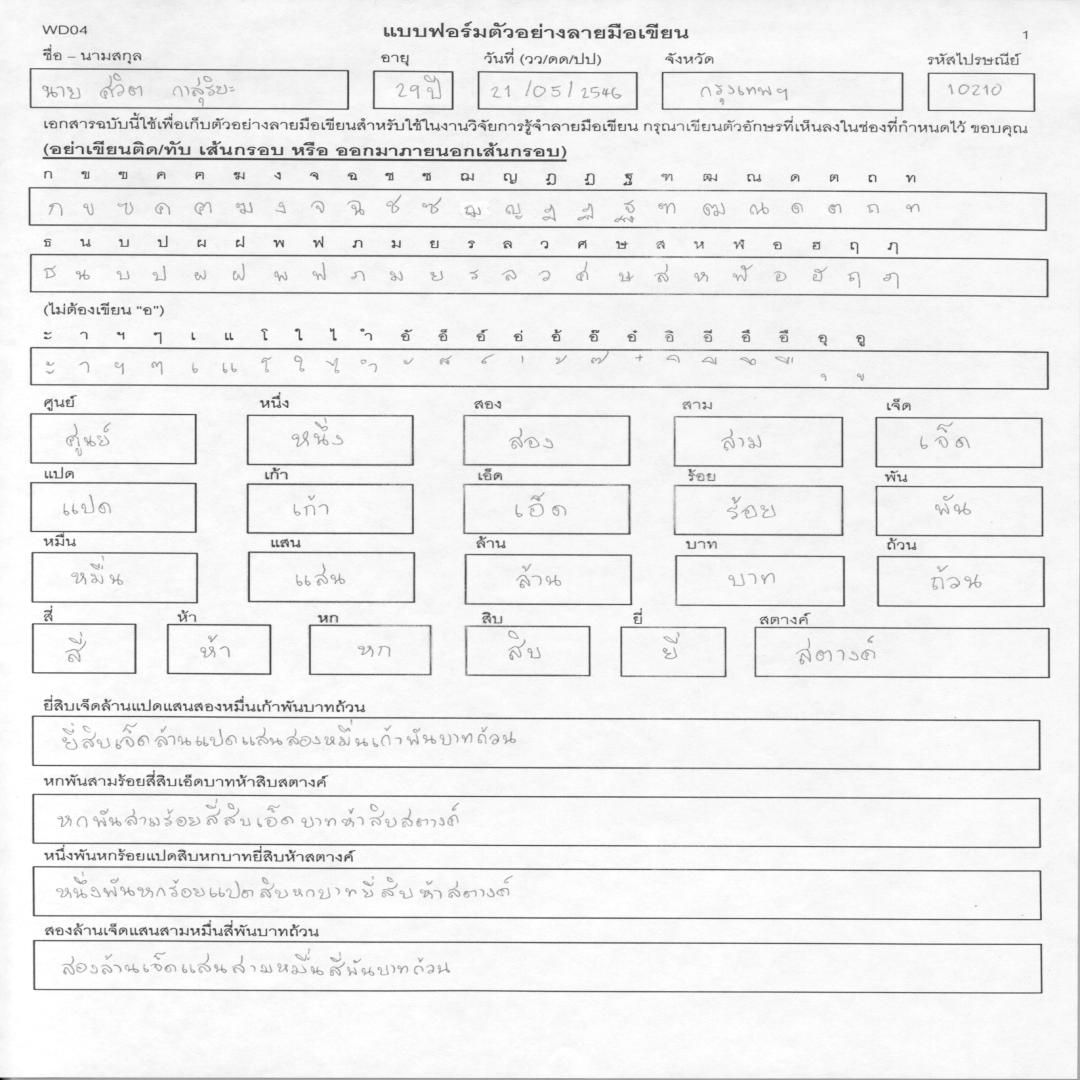 WD04
แบบฟอร์มตัวอย่างลายมือเขียน
1
ชื่อ – นามสกุล อายุ วันที่ (วว/ดด/ปป) จังหวัด รหัสไปรษณีย์
นาย ศวิต 29 ปี 21 /05 / 2546 กรุงเทพฯ 10210
เอกสารฉบับนี้ใช้เพื่อเก็บตัวอย่างลายมือเขียนสำหรับใช้ในงานวิจัยการรู้จำลายมือเขียน กรุณาเขียนตัวอักษรที่เห็นลงในช่องที่กำหนดไว้ ขอบคุณ
(อย่าเขียนติด/ทับ เส้นกรอบ หรือ ออกมาภายนอกเส้นกรอบ)
ก ข ฃ ค ฅ ฆ ง จ ฉ ช ซ ฌ ญ ฎ ฏ ฐ ฑ ฒ ณ ด ต ถ ท
ก ข ฃ ค ฅ ฆ ง จ ฉ ช ซ ฌ ญ ฎ ฏ ฐ ฑ ฒ ณ ด ต ถ ท
ธ น บ ป ผ ฝ พ ฟ ภ ม ย ร ล ว ศ ษ ส ห ฬ อ ฮ ฤ ฦ
ธ น บ ป ผ ฝ พ ฟ ภ ม ย ร ล ว ศ ษ ส ห ฬ อ ฮ ฤ ฦ
(ไม่ต้องเขียน “อ”)
ะ า ฯ ๆ เ แ โ ใ ไ ำ อั อ็ อ์ อ่ อ้ อ๊ อ๋ อิ อี อึ อื อุ อู
ะ า ฯ ๆ เ แ โ ใ ไ ำ ั ็ ์ ่ ้ ๊ ๋ ิ ี ึ ื ุ ู
ศูนย์ หนึ่ง สอง สาม เจ็ด
ศูนย์ หนึ่ง สอง สาม เจ็ด
แปด เก้า เอ็ด ร้อย พัน
แปด เก้า เอ็ด ร้อย พัน
หมื่น แสน ล้าน บาท ถ้วน
หมื่น แสน ล้าน บาท ถ้วน
สี่ ห้า หก สิบ ยี่ สตางค์
สี่ ห้า หก สิบ ยี่ สตางค์
ยี่สิบเจ็ดล้านแปดแสนสองหมื่นเก้าพันบาทถ้วน
ยี่สิบเจ็ดล้านแปดแสนสองหมื่นเก้าพันบาทถ้วน
หกพันสามร้อยสี่สิบเอ็ดบาทห้าสิบสตางค์
หกพันสามร้อยสี่สิบเอ็ดบาทห้าสิบสตางค์
หนึ่งพันหกร้อยแปดสิบหกบาทยี่สิบห้าสตางค์
หนึ่งพันหกร้อยแปดสิบหกบาทยี่สิบห้าสตางค์
สองล้านเจ็ดแสนสามหมื่นสี่พันบาทถ้วน
สองล้านเจ็ดแสนสามหมื่นสี่พันบาทถ้วน